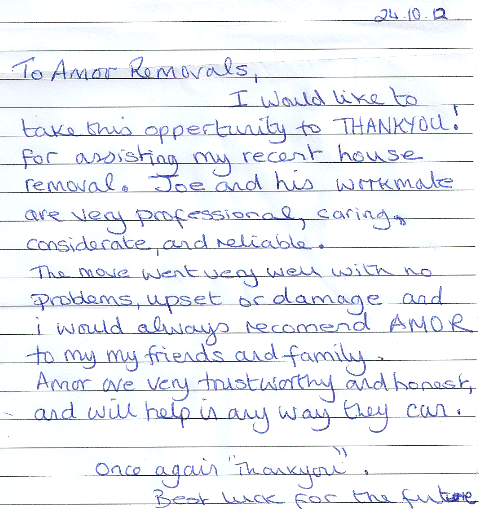 24.10.12
To Amor Removals,
I would like to
take this opportunity to THANKYOU!
for assisting my recent house
removal. Joe and his workmate
are very professional, caring,
considerate, and reliable.
The move went very well with no
problems, upset or damage and
i would always recomend AMOR
to my my friends and family.
Amor are very trustworthy and honest,
and will help in any way they can.
Once again "Thankyou".
Best luck for the future